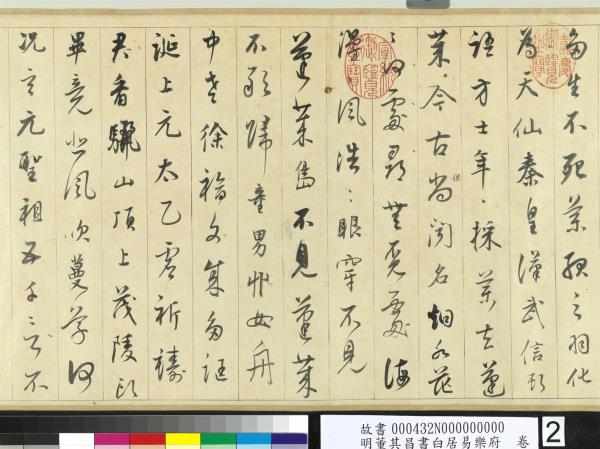 多生不死藥服之羽化
為天仙秦皇漢武信此
語方士年〻採藥去蓬
萊今古尚聞名烟水茫
但
〻何處尋無覓處海
漫〻風浩〻眼穿不見
蓬萊島不見蓬萊
不敢歸童男丱女舟
中老徐福文成多誑
誕上元太乙虛祈禱
君看驪山頂上茂陵頭
畢竟悲風吹蔓草何
況玄元聖祖五千言不
嘉慶御覽之寶
宣統御覽之寶
故書 000432N000000000
明董其昌書白居易樂府 卷
2